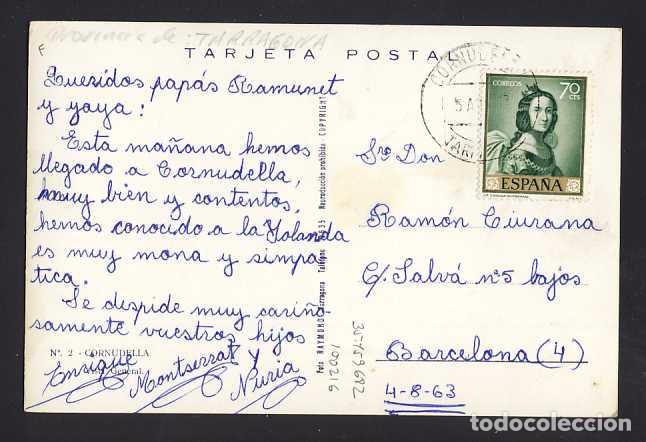 provincia de: TARRAGONA
TARJETA POSTAL
Queridos papás Ramunet
y yaya:
Esta mañana hemos
llegado a Cornudella,
muy bien y contentos,
hemos conocido a la Yolanda
es muy mona y simpa
tica.
Se despide muy cariño
samente vuestros hijos
Enrique
Montserrat y
Nuria
Nº. 2 - CORNUDELLA
General.
Fot. RAYMOND
Tarragona
Reproducción prohibida
COPYRIGHT
100216
CORNUDELLA
CORREOS
70
CTS
ESPAÑA
Sr. Don
Ramón Ciurana
C/. Salvá nº 5 bajos
Barcelona (4)
4-8-63
todocoleccion